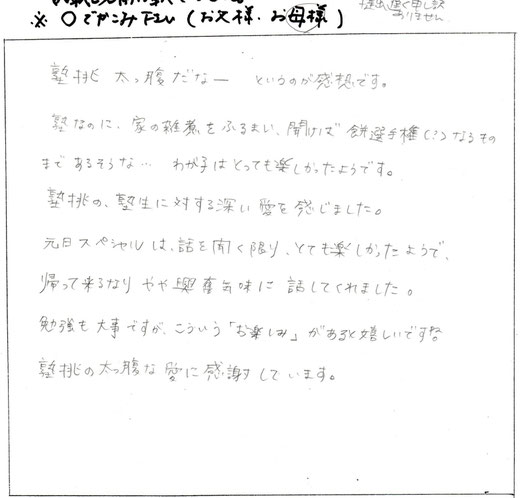 ※ ○でかこみ下さい (お父様・お母様)
申し訳
ありません
塾桃 太っ腹だなー というのが感想です。
塾なのに、家の雑煮をふるまい、聞けば 餅選手権(?)なるもの
まであるそうな… わが子はとっても楽しかったようです。
塾桃の、塾生に対する深い愛を感じました。
元日スペシャルは、話を聞く限り、とても楽しかったようで、
帰って来るなり やや興奮気味に 話してくれました。
勉強も大事ですが、こういう「お楽しみ」があると嬉しいですね
塾桃の太っ腹な愛に感謝しています。